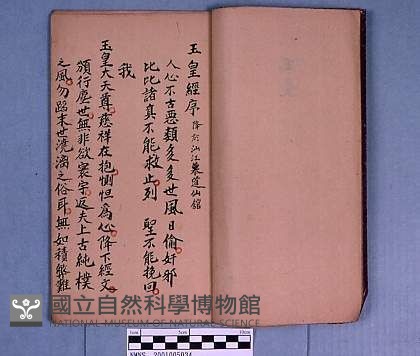 玉皇經序 降於汕江衆道仙館
人心不古惡類多多世風日偷奸邪
比比諸真不能救止列 聖不能挽回
我
玉皇大天尊慈祥在抱惻怛為心降下經文
頒行塵世無非欲寰宇返夫上古純樸
之風勿蹈末世澆漓之俗耳無如積弊難
國立自然科學博物館
NATIONAL MUSEUM OF NATURAL SCIENCE
NMNS 2001005034